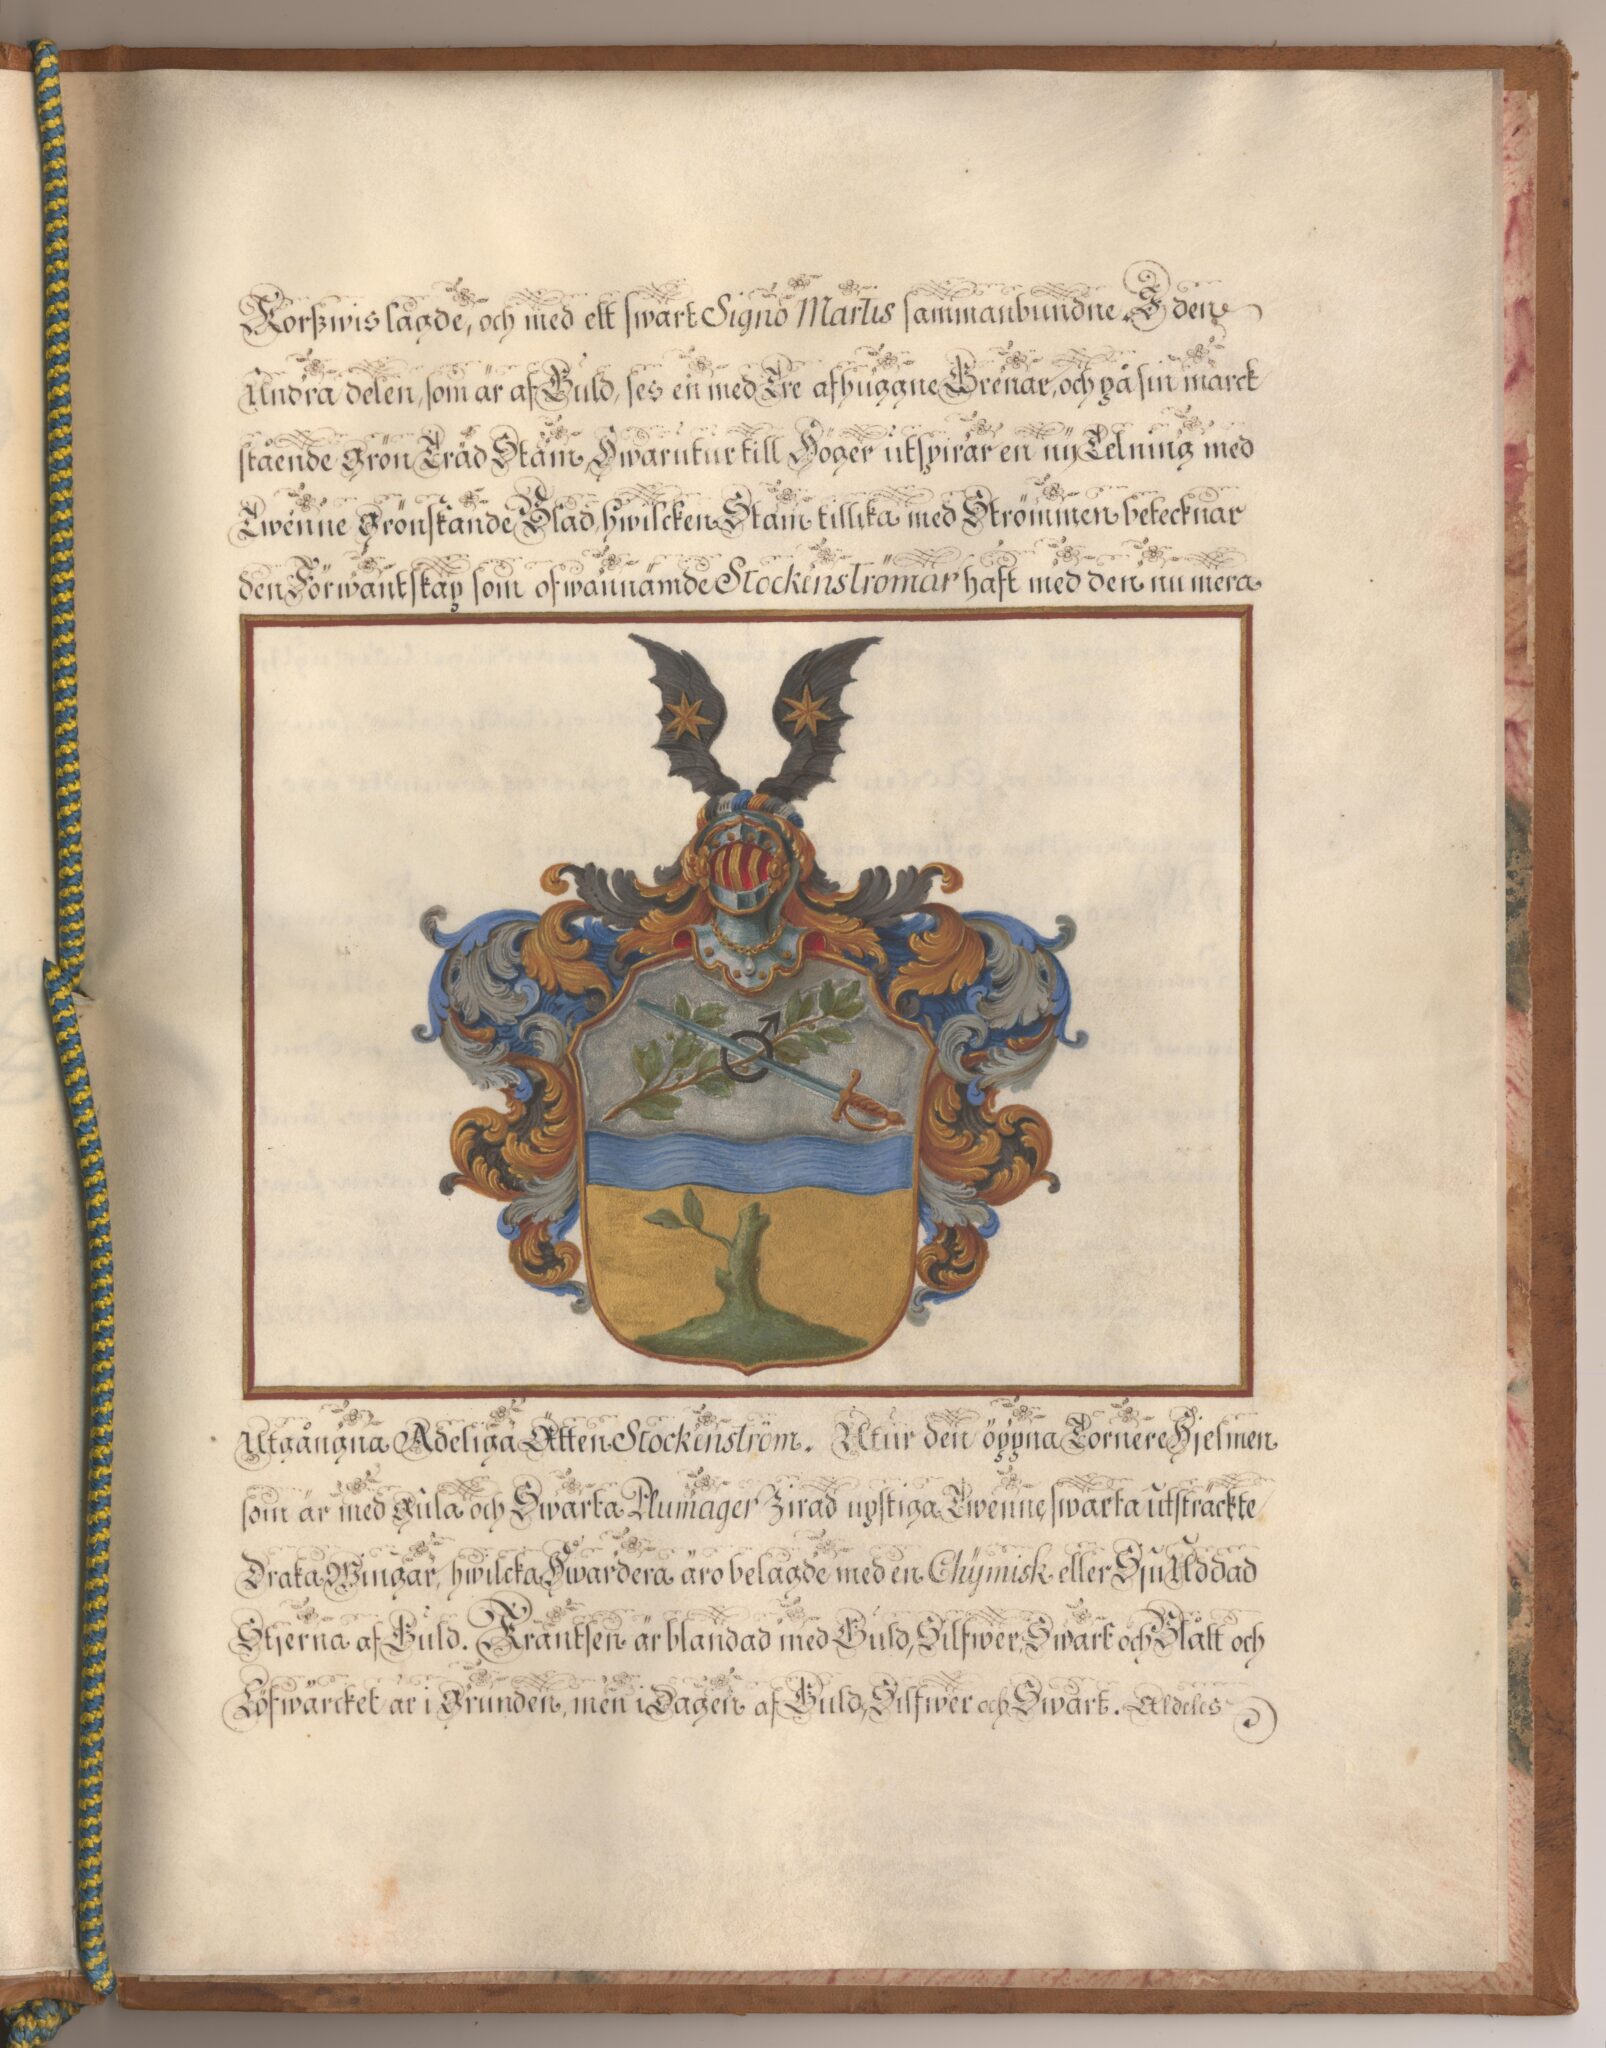 Korßwis lagde, och med ett swart Signo Martis sammanbundne. I den
Andra delen, som är af Guld, ses en med Tre afhuggne Grenar, och på sin marck
stående grön Träd Stam, Hwarutur till Höger utspirar en nÿ Telning med
Twenne grönskande Blad, hwilcken Stam tillika med Strömmen betecknar
den Förwantskap som ofwannämde Stockenströmar haft med den numera
Utgångna Adeliga Ätten Stockenström. Utur den öppna Tornere Hjelmen
som är med Gula och Swarta Plumager Zirad upstiga Twenne swarta utsträckte
Draka Wingar, hwilcka Hwardera äro belagde med en Chÿmisk eller Sju Uddad
Stjerna af Guld. Krantsen är blandad med Guld, Silfwer, Swart och Blått och
Löfwärcket är i Grunden, men i Dagen af Guld, Silfwer och Swart. Aldeles